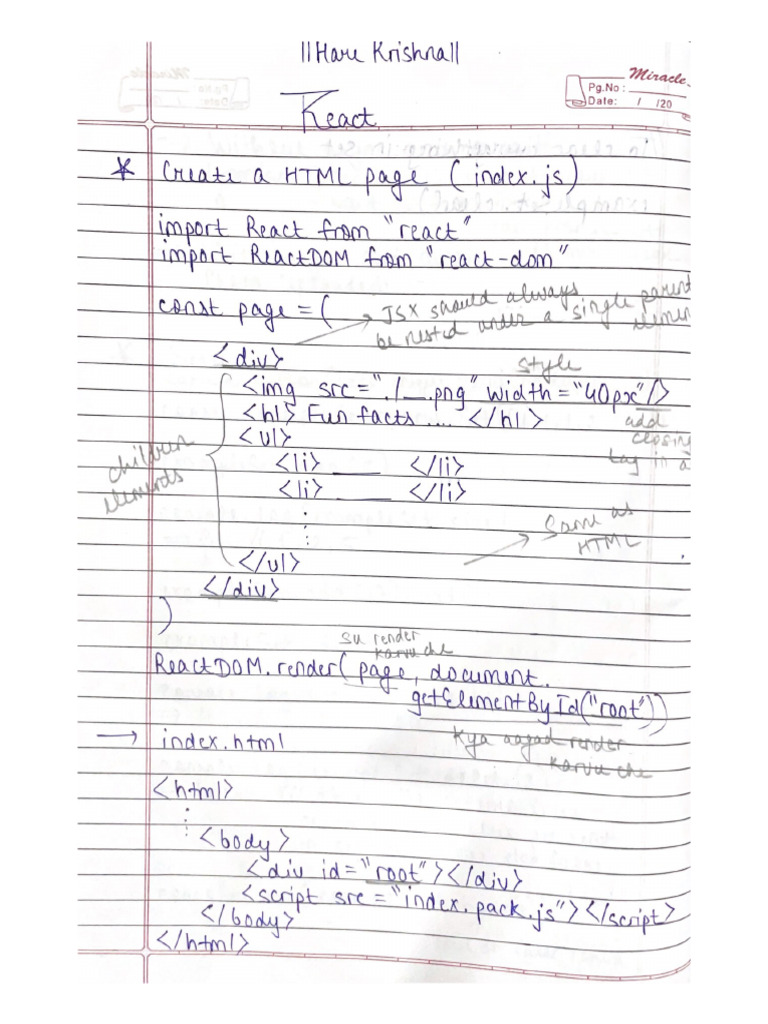 ||Hare Krishna||
Miracle
Pg.No :
Date: / /20
React
* Create a HTML page (index.js)
import React from "react"
import ReactDOM from "react-dom"
const page = (
→ JSX should always
be nested under a single parent
elemen
<div>
style
<img src="./__.png" width="40px"/>
<h1> Fun facts .... </h1>
add
closing
tag in a
<ul>
children
elements
<li> ____ </li>
<li> ____ </li>
⋮
→ Same as
HTML
</ul>
</div>
)
su render
karvu che
ReactDOM.render(page, document.
getElementById("root"))
→ index.html
Kya aagad render
karvu che
<html>
⋮
<body>
<div id="root"></div>
<script src="index.pack.js"></script>
</body>
</html>